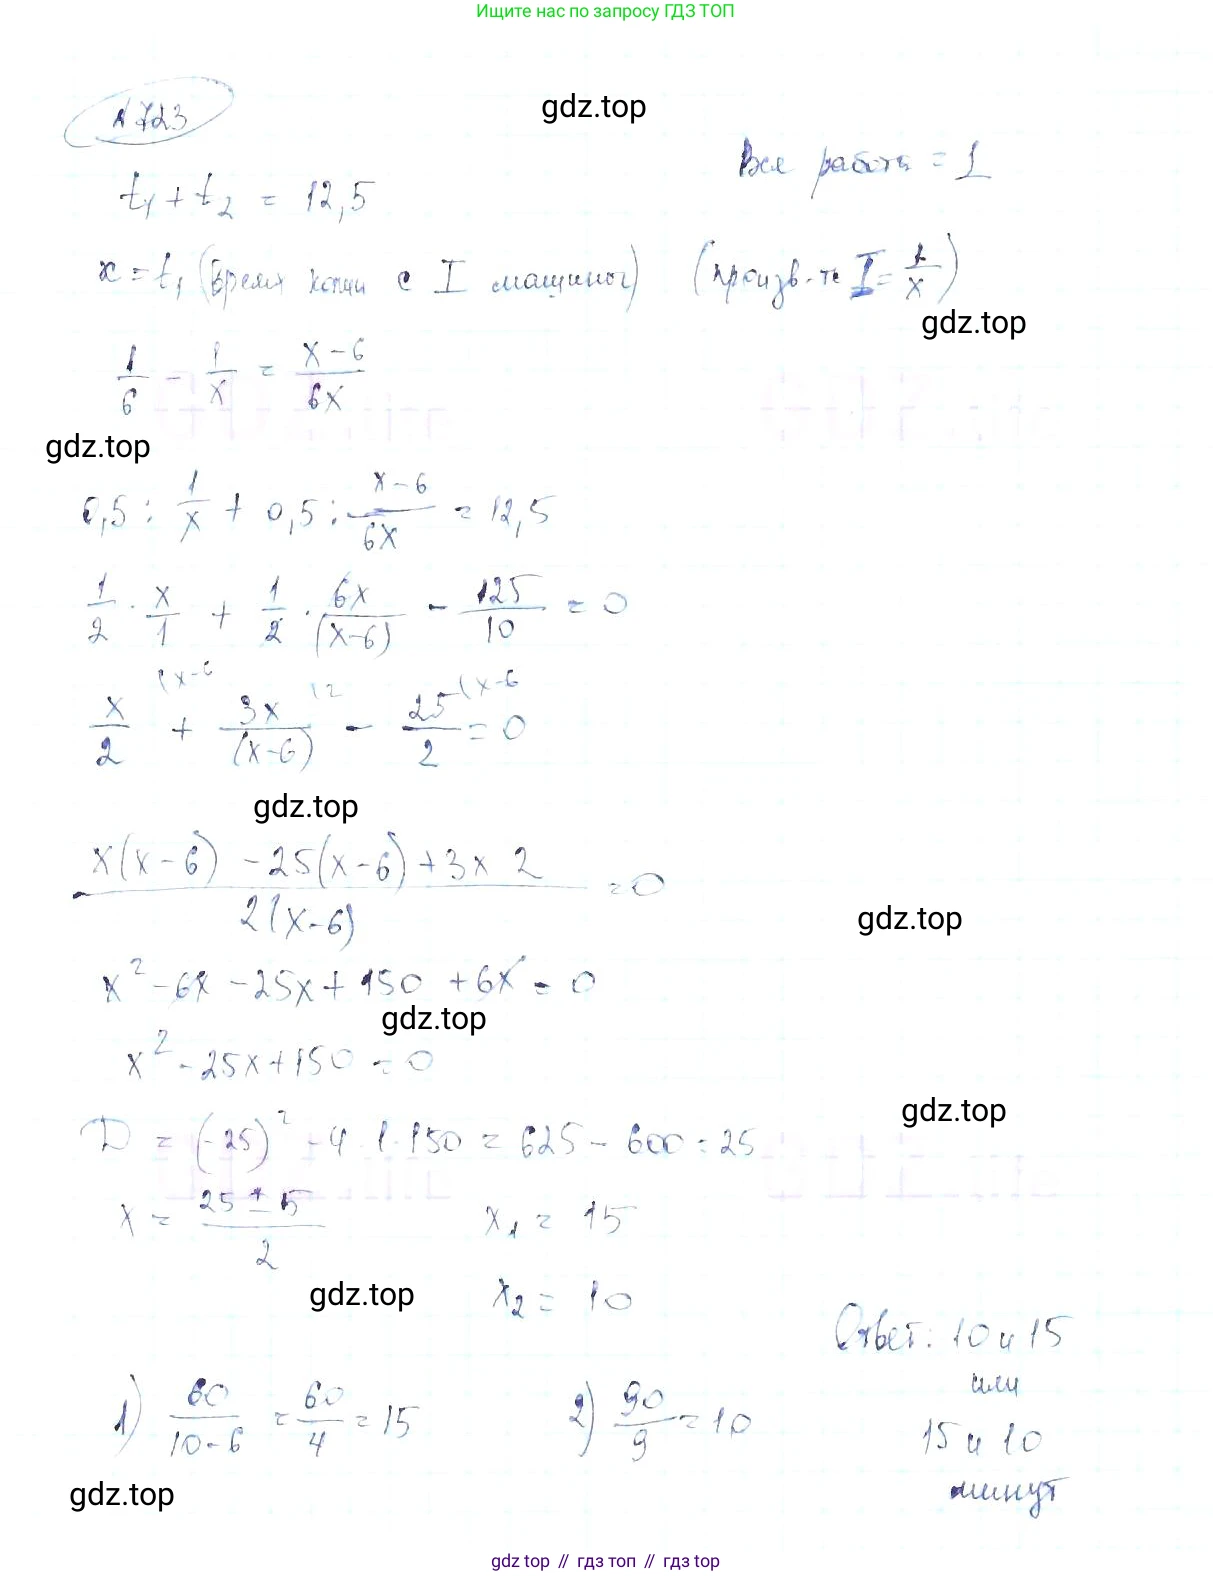 Ищите нас по запросу ГДЗ ТОП
№ 723
gdz.top
Вся работа = 1
t₁ + t₂ = 12,5
x = t₁ (время копии с I машины) (произв-ть I = 1/x)
gdz.top
1/6 - 1/x = (x-6)/6x
gdz.top
0,5 : 1/x + 0,5 : (x-6)/6x = 12,5
1/2 · x/1 + 1/2 · 6x/(x-6) - 125/10 = 0
x/2 (x-6 + 3x/(x-6) (2 - 25/2 (x-6 = 0
gdz.top
(x(x-6) - 25(x-6) + 3x 2)/2(x-6) = 0
gdz.top
x² - 6x - 25x + 150 + 6x = 0
gdz.top
x² - 25x + 150 = 0
gdz.top
D = (-25)² - 4·1·150 = 625 - 600 = 25
x = (25 ± 5)/2 x₁ = 15
gdz.top
x₂ = 10
Ответ: 10 и 15
или
1) 60/(10-6) = 60/4 = 15 2) 90/9 = 10
15 и 10
минут
gdz.top
gdz top // гдз топ // gdz top